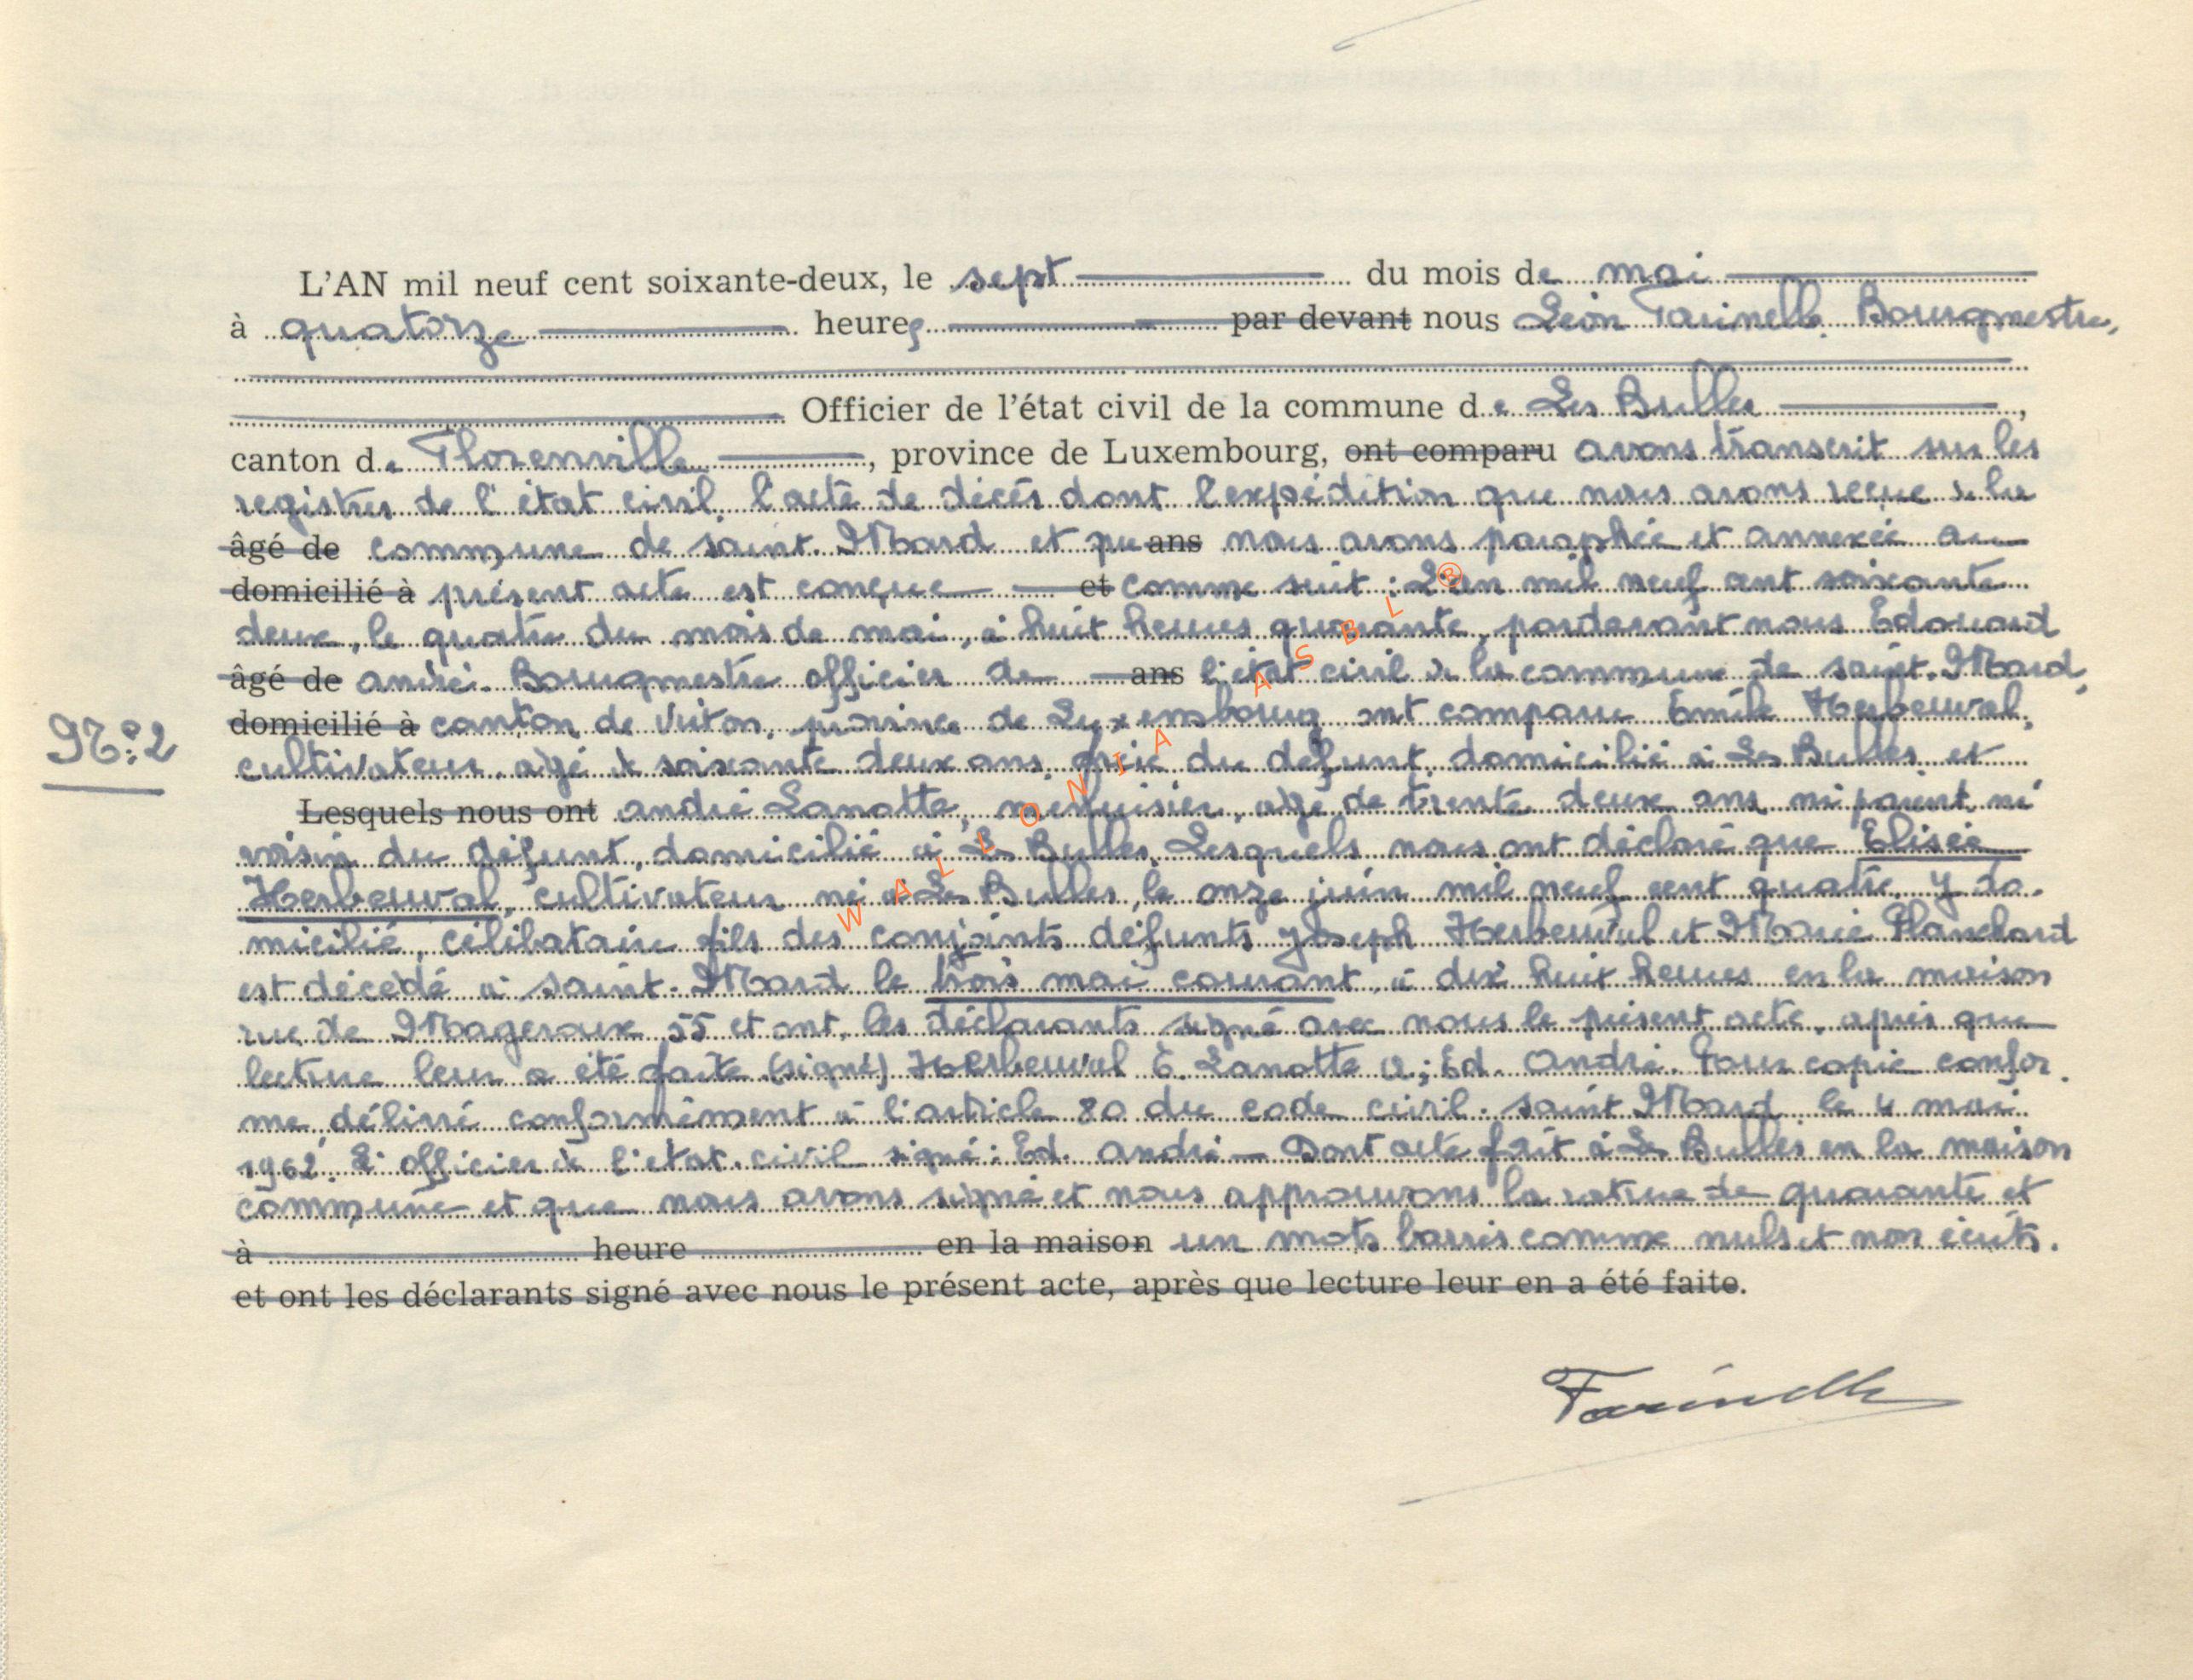 L'AN mil neuf cent soixante-deux, le sept du mois de mai
à quatorze heures par devant nous Léon Farinelle Bourgmestre,
Officier de l'état civil de la commune de Les Bulles,
canton de Florenville, province de Luxembourg, ont comparu avons transcrit sur les
registres de l'état civil, l'acte de décès dont l'expédition que nous avons reçue de la
âgé de commune de saint-Mard et que ans nous avons paraphée et annexée au
domicilié à présent acte est conçue et comme suit : L'an mil neuf cent soixante
deux, le quatre du mois de mai, à huit heures quarante, pardevant nous Edouard
âgé de andré. Bourgmestre officier de ans l'état civil de la commune de saint-Mard,
domicilié à canton de Virton, province de Luxembourg ont comparu Emile Herbeuval,
N° 2
cultivateur, âgé de soixante deux ans, frère du défunt, domicilié à Les Bulles et
Lesquels nous ont andré Lanotte, menuisier, âgé de trente deux ans ni parent ni
voisin du défunt, domicilié à Les Bulles. Lesquels nous ont déclaré que Elisée
Herbeuval, cultivateur né à Les Bulles, le onze juin mil neuf cent quatre, y do-
micilié, célibataire fils des conjoints défunts Joseph Herbeuval et Marie Planchard
est décédé à saint-Mard le trois mai courant, à dix huit heures en la maison
rue de Mageroux 55 et ont, les déclarants signé avec nous le présent acte, après que
lecture leur a été faite (signé) Herbeuval E. Lanotte a; Ed. André. Pour copie confor-
me, délivré conformément à l'article 80 du code civil. saint Mard le 4 mai
1962. L'officier de l'état-civil signé : Ed. andré — Dont acte fait à Les Bulles en la maison
commune et que nous avons signé et nous approuvons la rature de quarante et
à heure en la maison un mots barrés comme nuls et non écrits.
et ont les déclarants signé avec nous le présent acte, après que lecture leur en a été faite.
Farinelle
WALLONIA ASBL ®